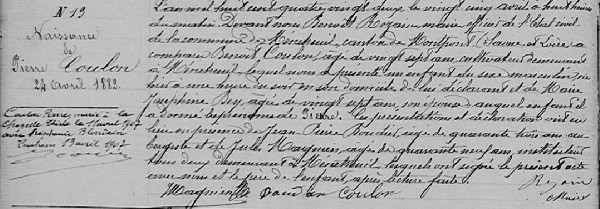 N 13
Naissance
de
Pierre Coulon
24 Avril 1882
Coulon Pierre marié à la
Chapelle
avril 1907
L'an mil huit cent quatre vingt deux le vingt cinq avril à huit heures
du matin devant nous Benoit Rozain maire officier de l'état civil
de la commune de canton de (Saône et Loire) a
comparu Benoit Coulon, âgé de vingt sept ans, cultivateur demeurant
à lequel nous a présenté un enfant du sexe masculin, né
hier à une heure du soir en son domicile, de lui déclarant et de Marie
Joséphine Bey, âgée de vingt sept ans, son épouse, auquel enfant il
a donné les prénoms de Pierre. Les présentation et déclaration ont eu
lieu en présence de Jean Pierre âgé de quarante trois ans
et de Jules Magnien, âgé de quarante neuf ans, instituteur
tous deux demeurant à lesquels ont signé le présent acte
avec nous et le père de l'enfant, après lecture faite.
Magnien Coulon Rozain
Maire